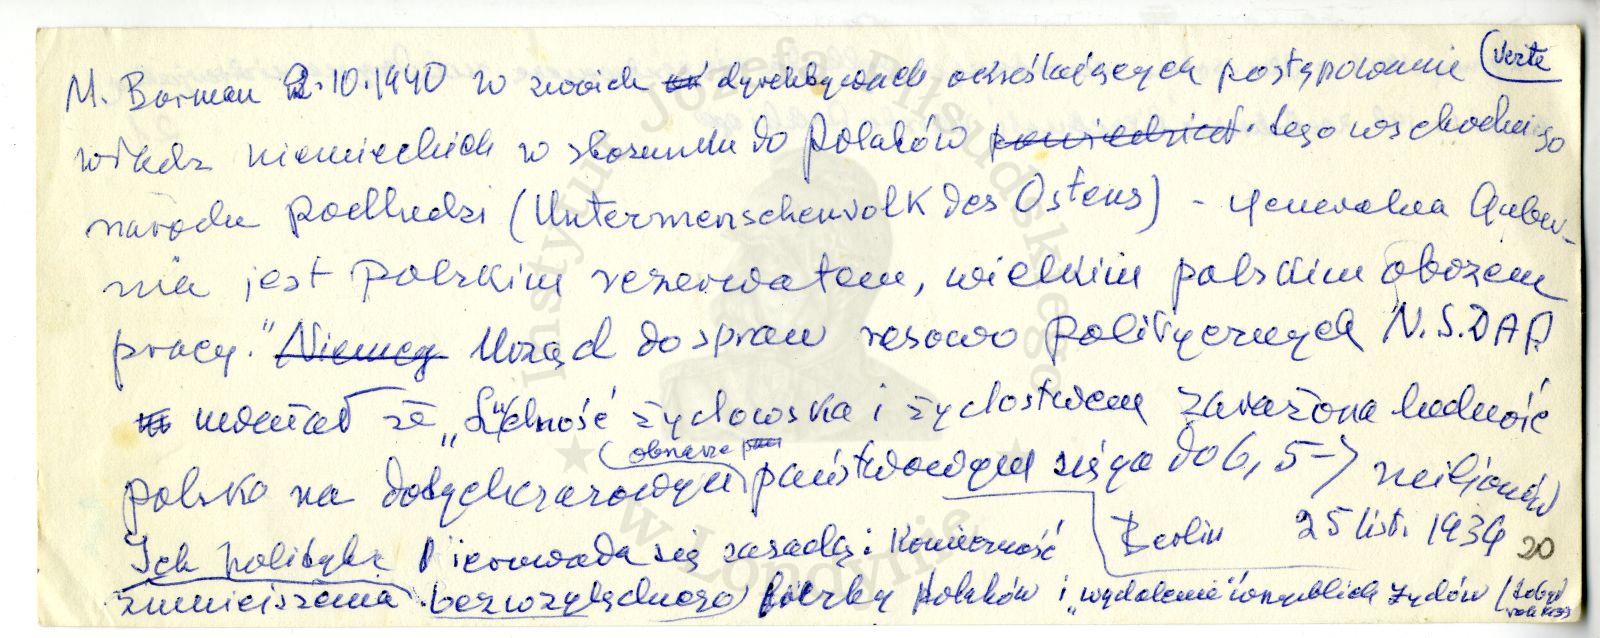 M. Borman 2.10.1940 w swoich dyrektywach określających postępowanie (verte
władz niemieckich w stosunku do Polaków powiedział. tego wschodniego
narodu podludzi (Untermenschenvolk des Ostens) - Generalna Guber-
nia jest polskim rezerwatem, wielkim polskim obozem
pracy." Niemcy Urząd do spraw rasowo politycznych N.S.D.A.P.
uważał że „Ludność żydowska i żydostwem zarażona ludność
obszarze
polska na dotychczasowym państwowym sięga do 6,5-7 miljonów
Berlin 25 list. 1939 20
Ich polityka kierowała się zasadą i konieczność
zmniejszenia bezwzględnego liczby Polaków i „wydalenie" żydów
Instytut Józefa Piłsudskiego
w Londynie